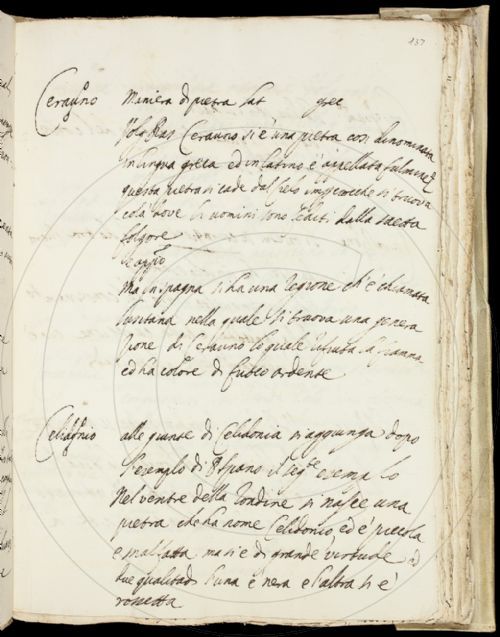 137
Cerauno Miniera di pietra Lat grec
Cerauno si è una pietra così dinominata
in lingua greca ed in latino è appellata fulmine
questa pietra si cade dal si truova
colà dove li uomini sono fediti dalla saetta
folgore
Ma in ispagna si ha una regione ch'è chiamata
lusitana nella quale si truova una genera
zione di Cerauno lo quale la fiamma
ed ha colore di fuoco ardente
Celidonio alle giunte di Celidonia si aggiunga dopo
l'esempio di il esempio
Nel ventre della rondine si nasce una
pietra che ha nome Celidonio, ed è piccola
e ma si è di grande vertude
due l'una è nera e l'altra si è
rossetta